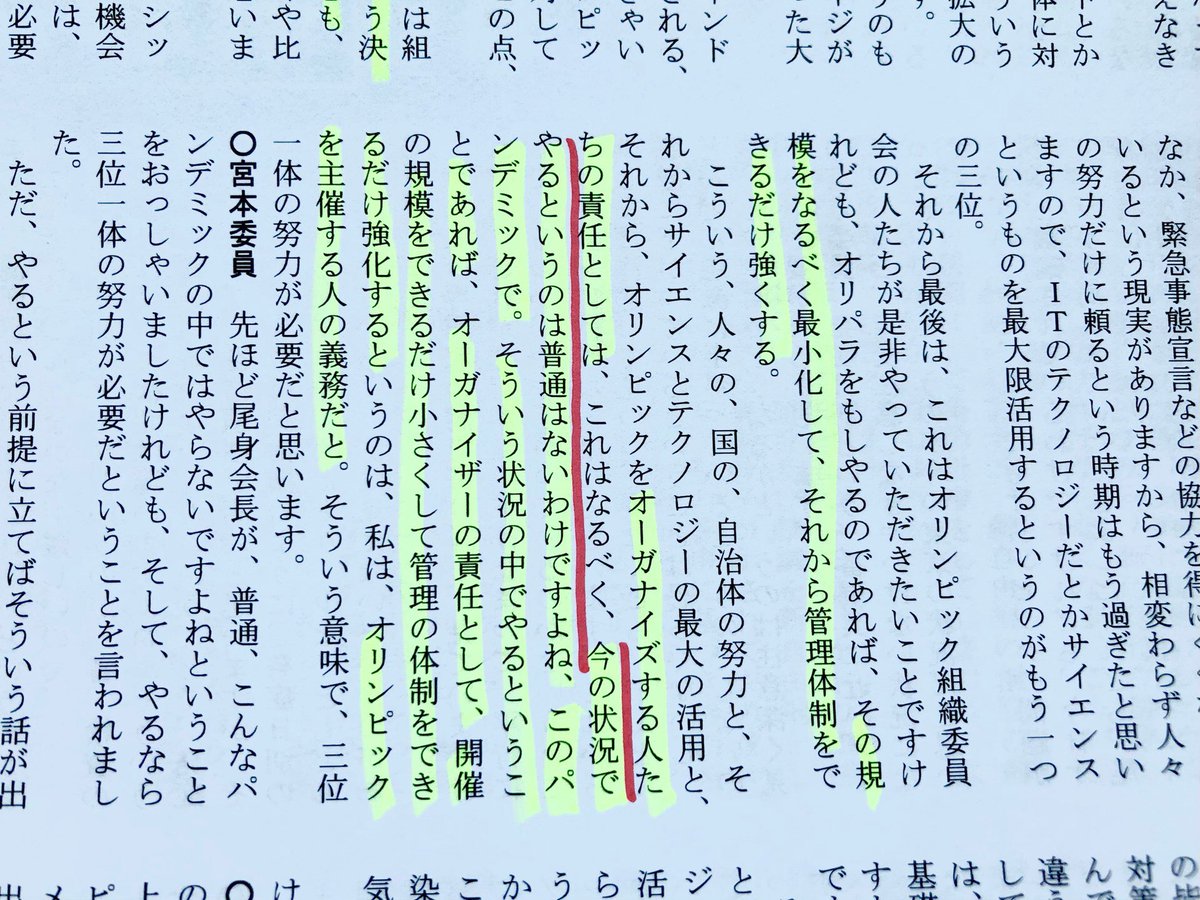 えなき
とか
体に対
ういう
拡大の
す。
うのも
ジが
した大
ンド
される、
きゃい
ピッ
して
の点、
は組
う決
も、
や比
いま
シッ
機会
は、
必要
なか、緊急事態宣言などの協力を得
いるという現実がありますから、相変わらず人々
の努力だけに頼るという時期はもう過ぎたと思い
ますので、ＩＴのテクノロジーだとかサイエンス
というものを最大限活用するというのがもう一つ
の三位。
　それから最後は、これはオリンピック組織委員
会の人たちが是非やっていただきたいことですけ
れども、オリパラをもしやるのであれば、その規
模をなるべく最小化して、それから管理体制をで
きるだけ強くする。
　こういう、人々の、国の、自治体の努力と、そ
れからサイエンスとテクノロジーの最大の活用と、
それから、オリンピックをオーガナイズする人た
ちの責任としては、これはなるべく、今の状況で
やるというのは普通はないわけですよね、このパ
ンデミックで。そういう状況の中でやるというこ
とであれば、オーガナイザーの責任として、開催
の規模をできるだけ小さくして管理の体制をでき
るだけ強化するというのは、私は、オリンピック
を主催する人の義務だと。そういう意味で、三位
一体の努力が必要だと思います。
○宮本委員　先ほど尾身会長が、普通、こんなパ
ンデミックの中ではやらないですよねということ
をおっしゃいましたけれども、そして、やるなら
三位一体の努力が必要だということを言われまし
た。
　ただ、やるという前提に立てばそういう話が出
の皆
対策
んで
違う
して
は、
基礎
す
で
と
ジ
活
ら
う
か
こ
染
気
け
○
の
上
ピ
メ
出